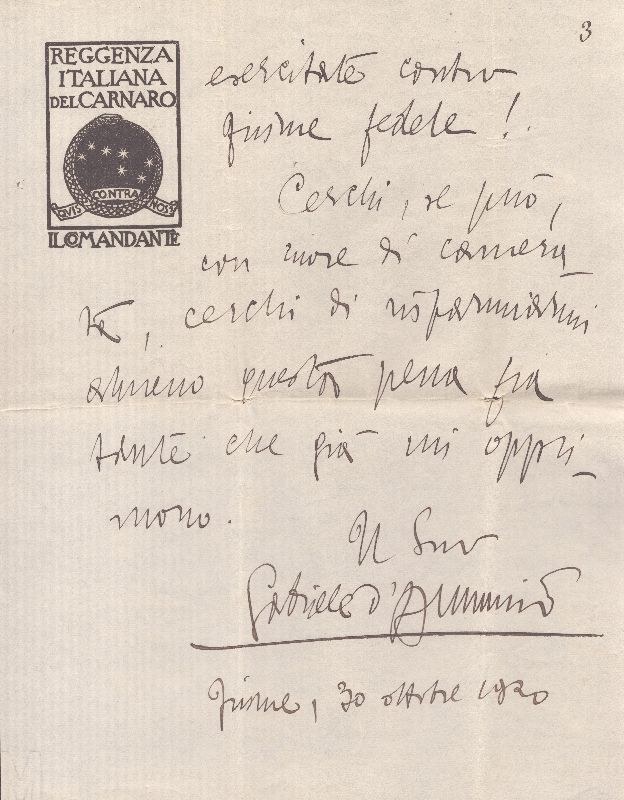 3
REGGENZA
ITALIANA
DEL CARNARO
QUIS CONTRA NOS?
IL COMANDANTE
esercitate contro
Fiume fedele!
Cerchi, se può,
con cuore di camera-
ta, cerchi di risparmiarmi
almeno questa pena fra
tante che già mi oppri-
mono.
Il Suo
Gabriele d'Annunzio
Fiume, 30 ottobre 1920